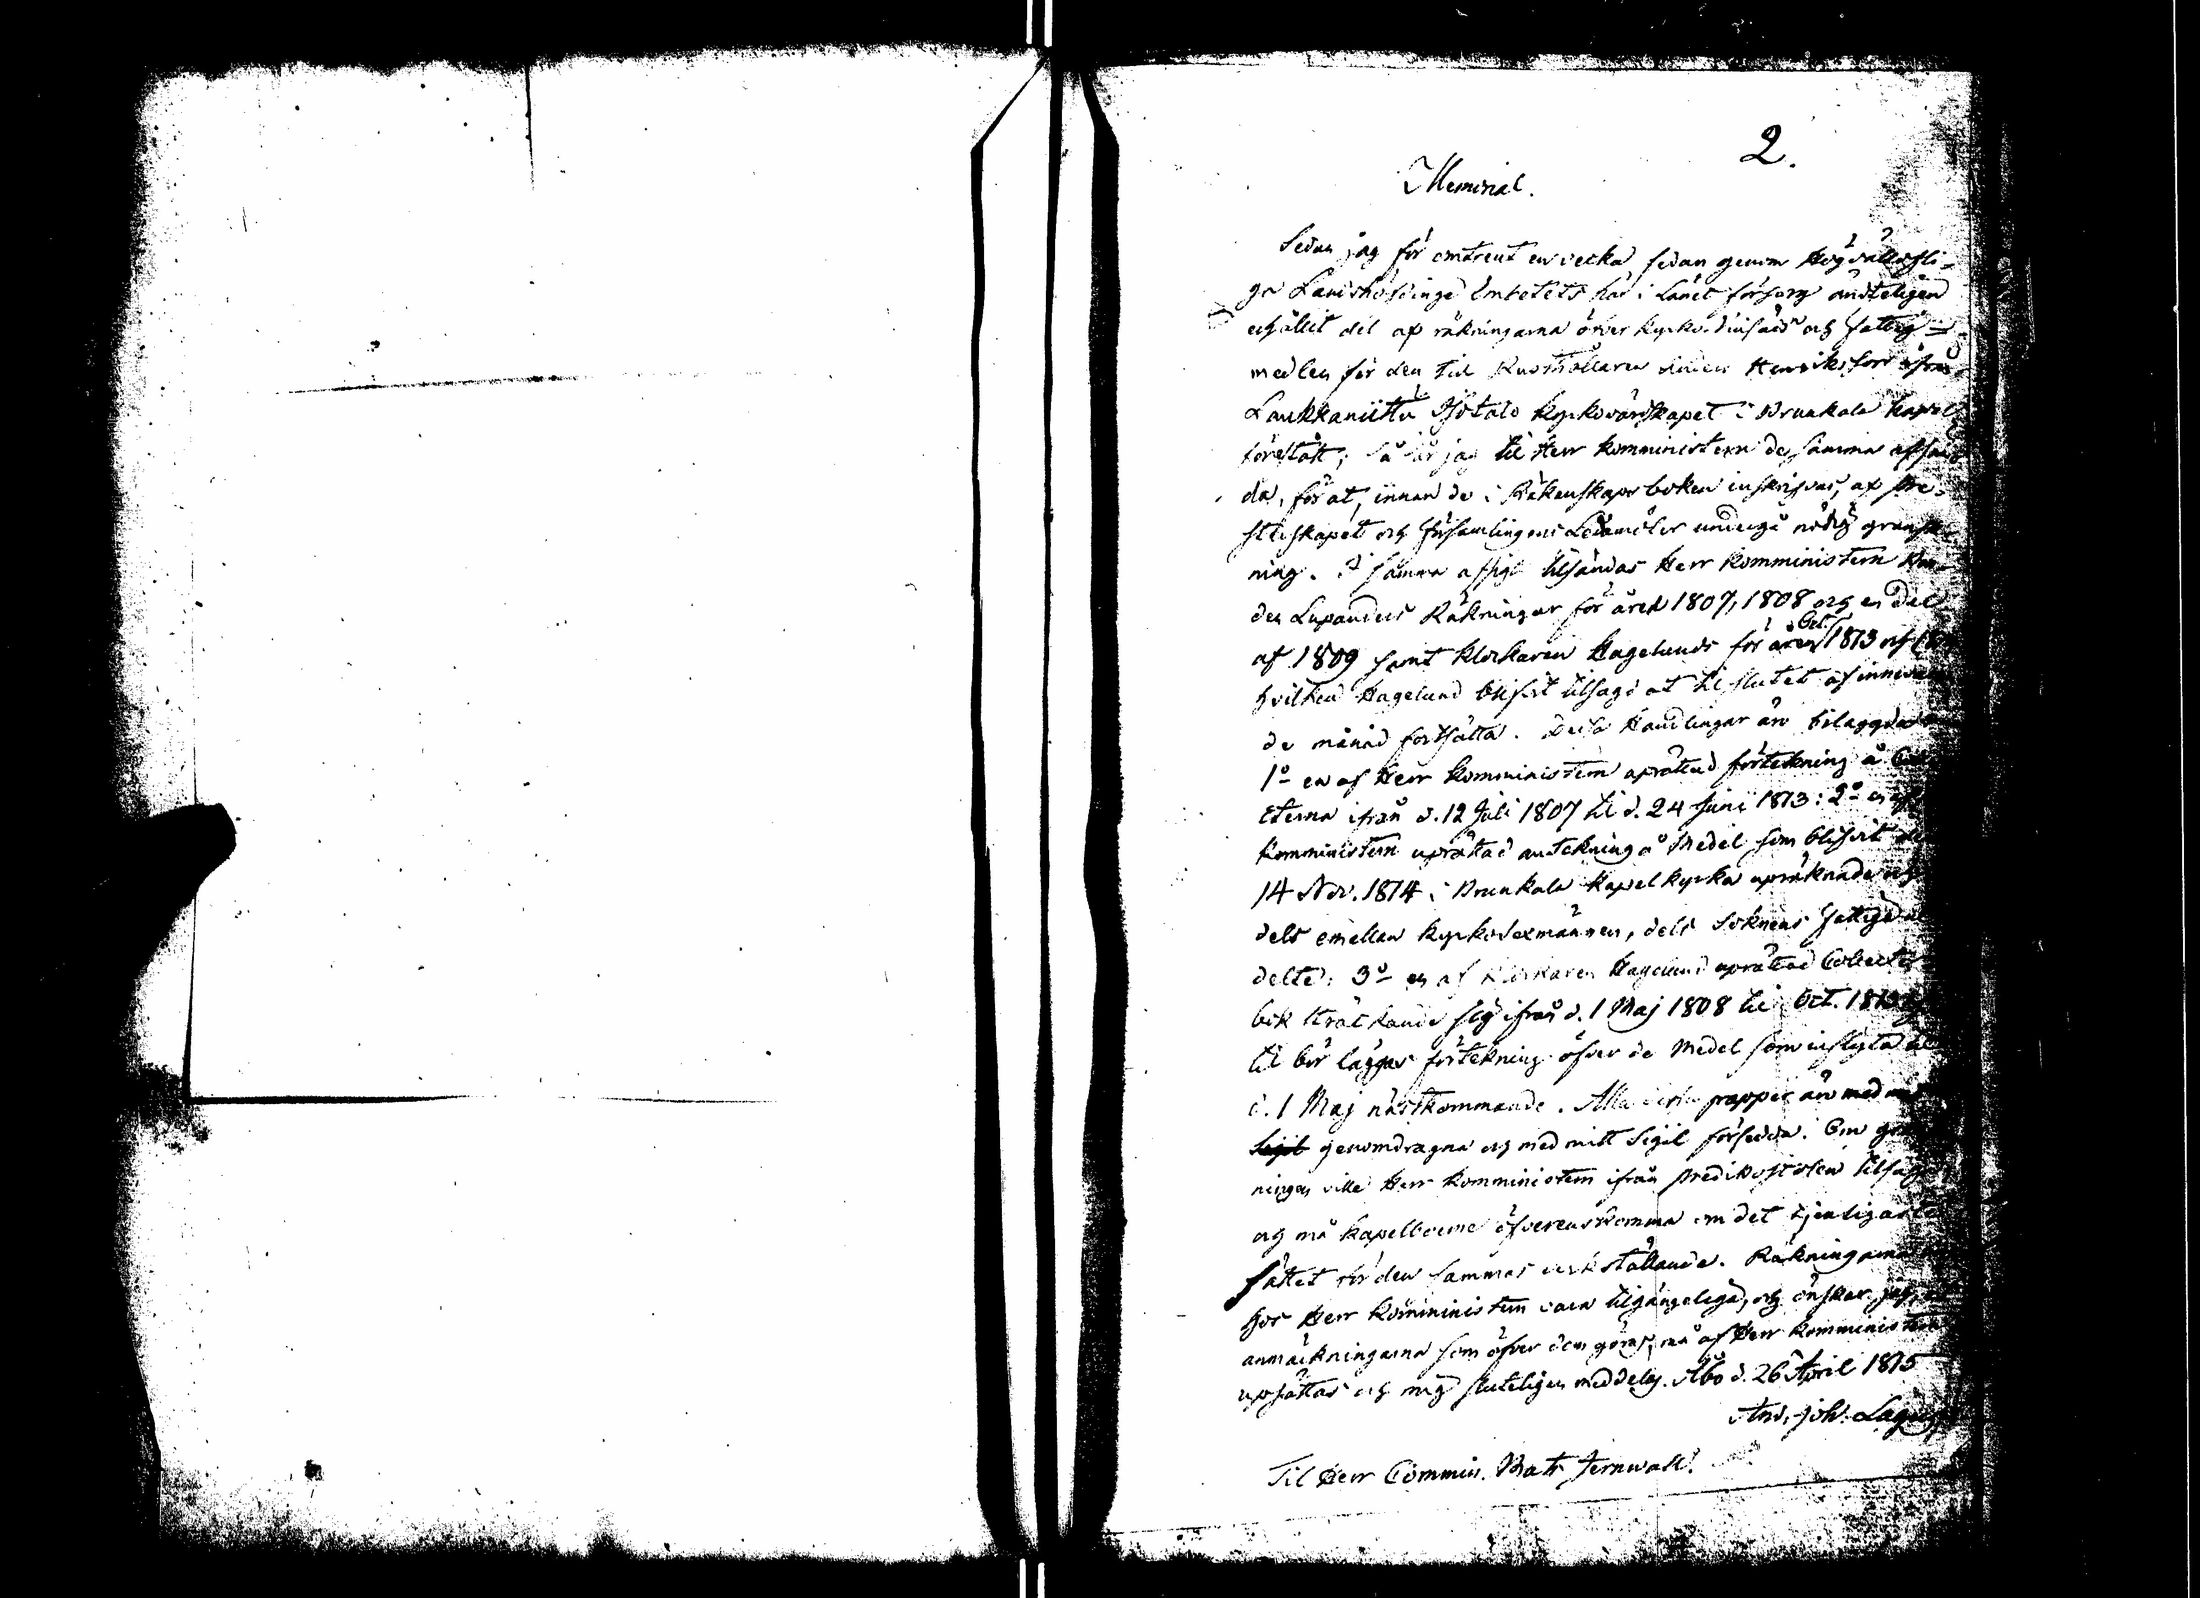 2.
Memorial.
Sedan jag för omtrent en vecka sedan genom Högvälbofli-
ga Landshöfdinge Embetets här i Länet försorg ändteligen
erhållit del af räkningarna öfver kyrko- och fattig-
medlen för den tid Rusthållaren Henriksson ifrån
Laukkaniittu Kyrkovärdskapet i Prunkala kapel
förestått; så får jag til Herr Komministern de samma afsän-
da, för at, innan de i Räkenskaps boken inskrifvas, af Pre-
sterskapet och församlingens Ledamöter undergå nödig gransk-
ning. I samma afsigt tilsändas Herr Komministern
den Lupanders Räkningar för åren 1807, 1808 och en del
af 1809 samt klockaren Hagelunds för åren 1813
hvilken Hagelund blifvit tilsagd at til slutet af inneva
de månad fortsätta. Dessa Handlingar äro bilaggda
1o en af Herr Komministern uprättad förtekning å
terna ifrån d. 12 Juli 1807 til d. 24 Juni 1813: 2o en af
Komministern uprättad antekning å Medel som blifvit
14 Nov. 1814 i Prunkala Kapelkyrka upräknade och
dels emellan Kyrkosexmännen, dels Soknens fattiga
delte: 3o en af Klockaren Hagelund uprättad Collect
bok sträckande sig ifrån d. 1 Maj 1808 til Oct. 1813
til bör läggas förtekning öfver de Medel som influtit
d. 1 Maj nästkommande. Alla papper äro med
Sigil genomdragna och med mitt Sigil försedda. Om gran
ningen ville Herr Komministern ifrån Predikostolen tilsäg
och må kapelboerne öfverenskomma om det tjenligaste
sättet för den sammas verkställande. Räkningarna
hos Herr Komministern vara tilgängeliga, och önskar jag,
anmärkningarna som öfver dem göras, må af Herr Komministern
upsättas och mig sluteligen meddelas. Åbo d. 26 April 1815
And. Joh. Lagus
Til Herr Commin. Mats Jernwall.